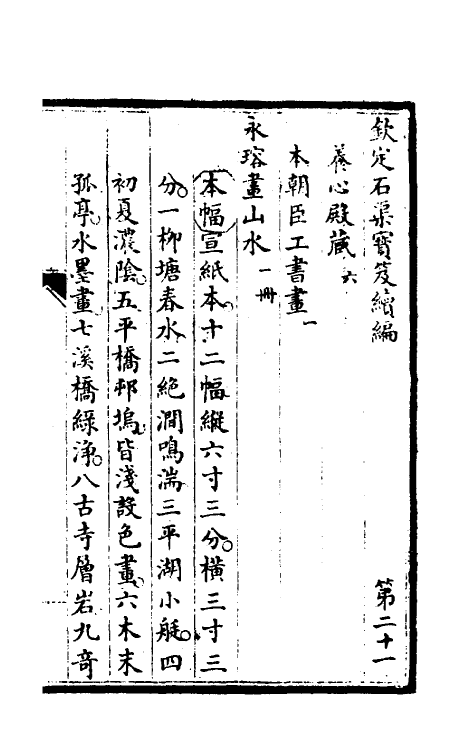 欽定石渠寶笈續編 第二十一
養心殿藏六
本朝臣工書畫一
永瑢畫山水一冊
本幅宣紙本十二幅縱六寸三分橫三寸三
分一柳塘春水二絕澗鳴湍三平湖小艇四
初夏濃陰五平橋邨塢皆淺設色畫六木末
孤亭水墨畫七溪橋綠淨八古寺層岩九奇